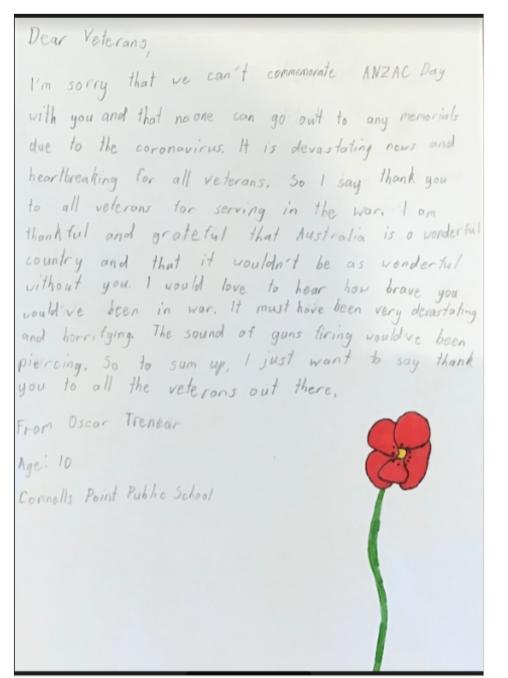 Dear Veterans,
I'm sorry that we can't commemorate ANZAC Day
with you and that no one can go out to any memorials
due to the coronavirus. It is devastating news and
heartbreaking for all veterans. So I say thank you
to all veterans for serving in the war. I am
thankful and grateful that Australia is a wonderful
country and that it wouldn't be as wonderful
without you. I would love to hear how brave you
would've been in war. It must have been very devastating
and horrifying. The sound of guns firing would've been
piercing. So to sum up, I just want to say thank
you to all the veterans out there.
From Oscar Trenear
Age: 10
Connells Point Public School